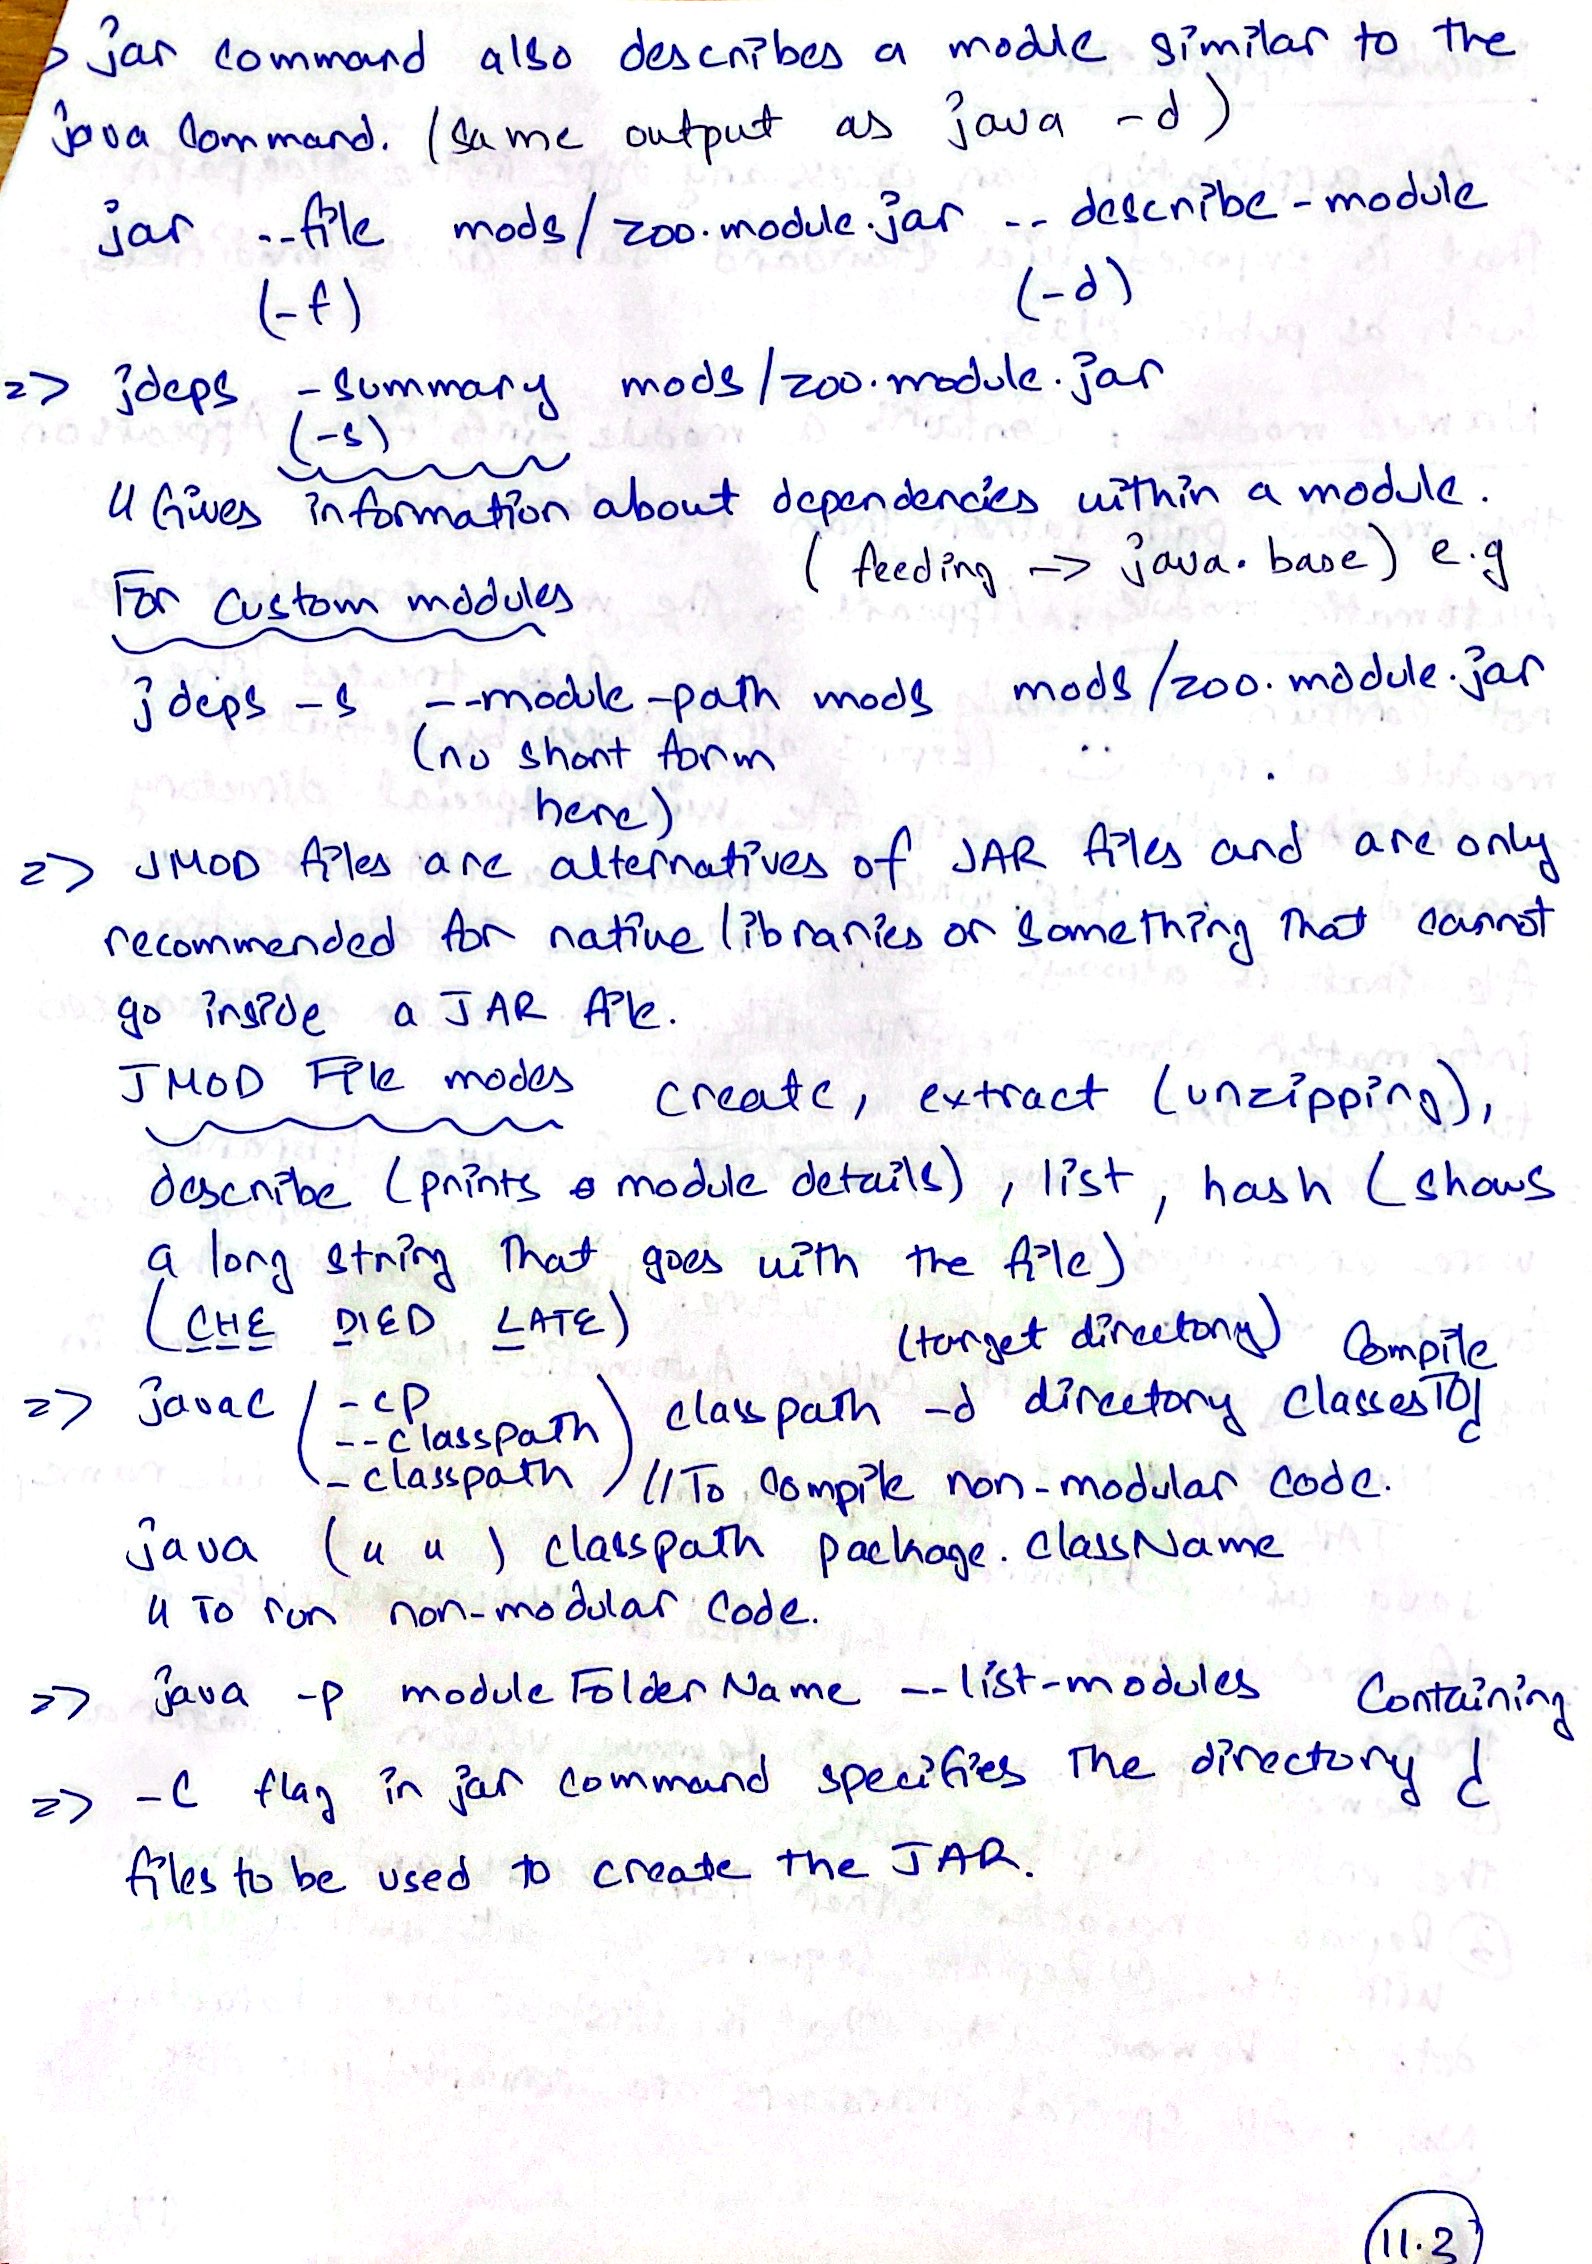 => jar command also describes a module similar to the
java command. (same output as java -d)
jar --file mods/zoo.module.jar --describe-module
(-f) (-d)
=> jdeps -summary mods/zoo.module.jar
(-s)
// Gives information about dependencies within a module.
(feeding -> java.base) e.g
For custom modules
jdeps -s --module-path mods mods/zoo.module.jar
(no short form
here)
=> JMOD files are alternatives of JAR files and are only
recommended for native libraries or something that cannot
go inside a JAR file.
JMOD File modes create, extract (unzipping),
describe (prints module details), list, hash (shows
a long string that goes with the file)
(CHE DIED LATE)
(target directory) Compile
=> javac (-cp
--classpath) classpath -d directory classesTo
-classpath // To compile non-modular code.
java (" ") classpath package.className
// To run non-modular code.
=> java -p moduleFolderName --list-modules
Containing
=> -C flag in jar command specifies the directory
files to be used to create the JAR.
11.3